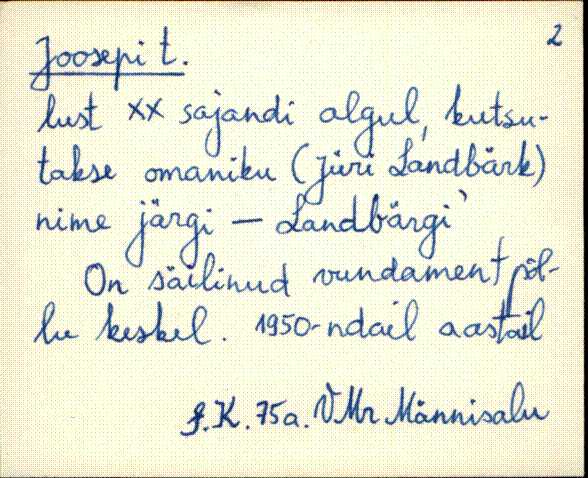 2
Joosepi t.
lust XX sajandi algul, kutsu-
takse omaniku (Jüri Landbärk)
nime järgi — Landbärgi`
On säilinud vundament põl-
lu keskel. 1950-ndail aastail
J.K. 75a. VMr Männisalu